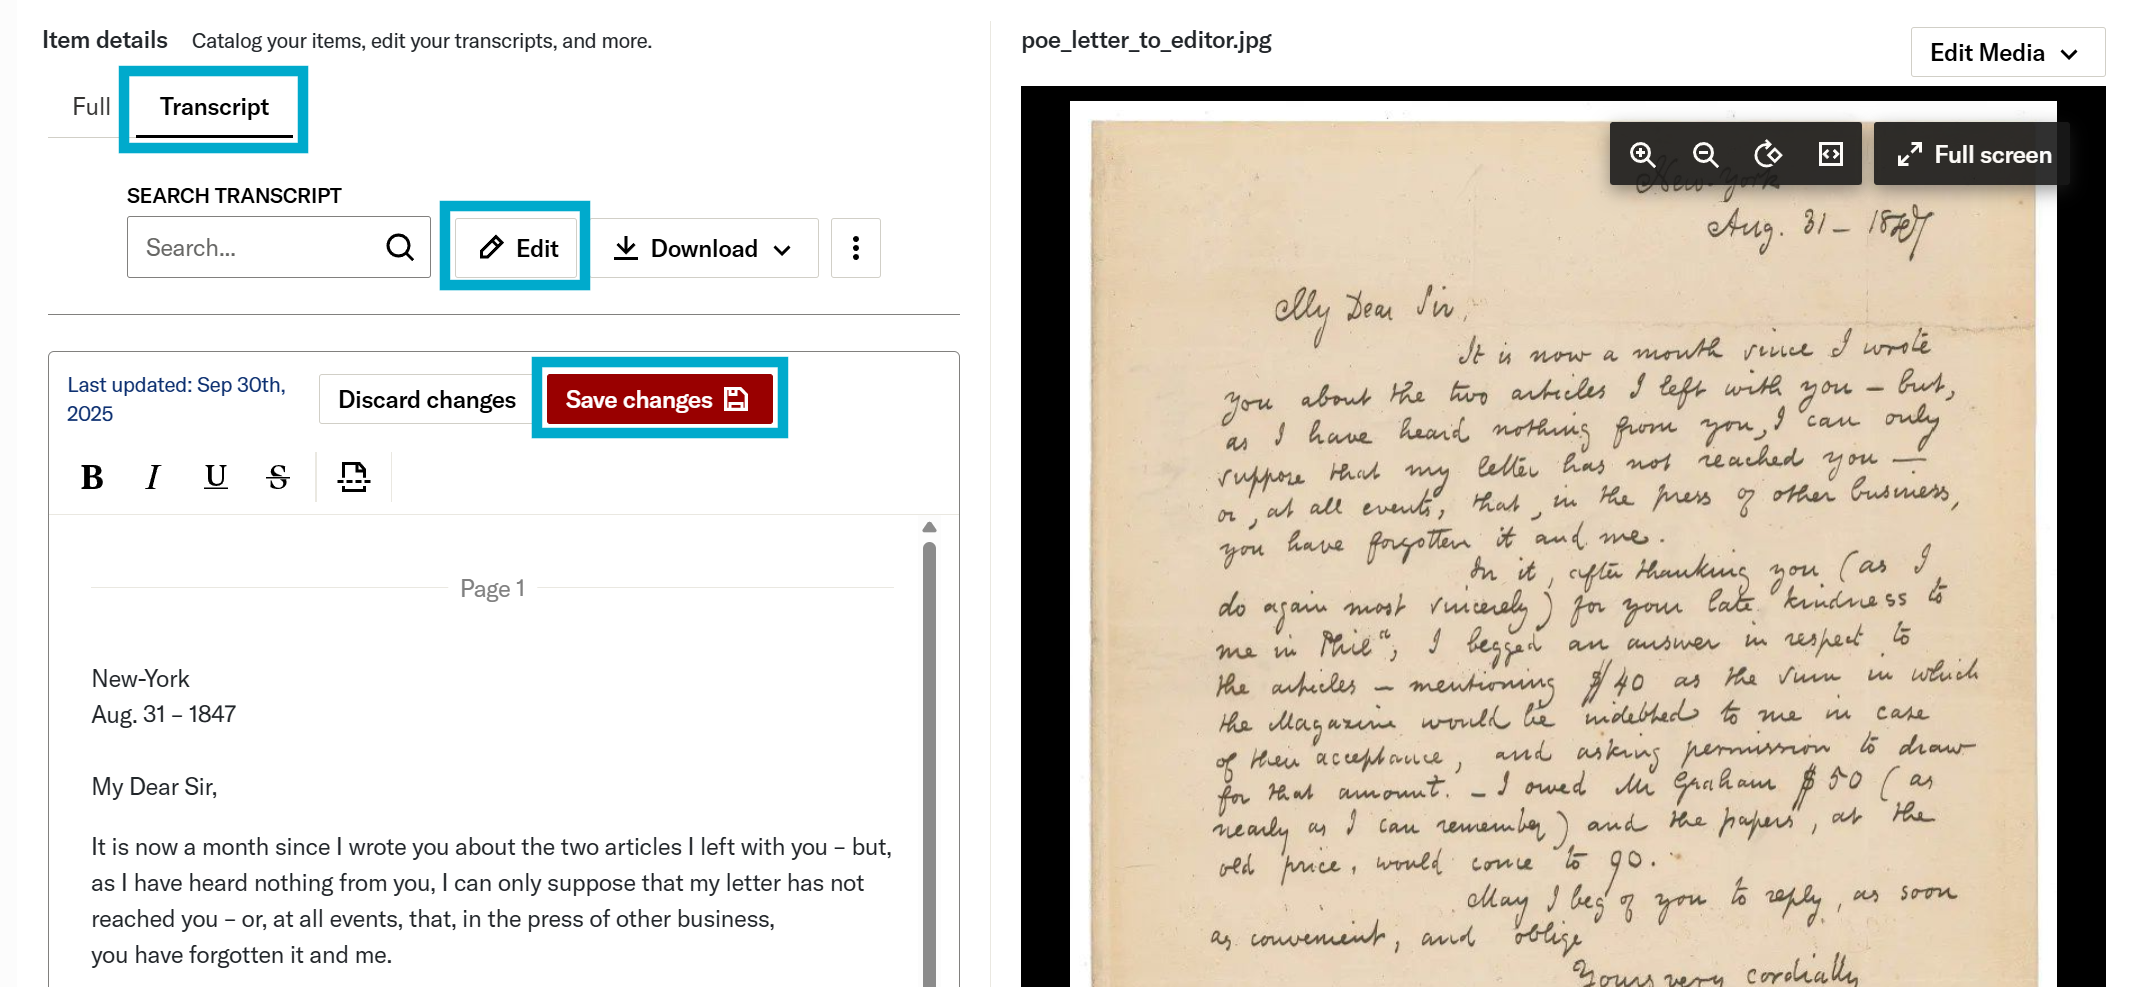 Item details Catalog your items, edit your transcripts, and more.
Full
Transcript
SEARCH TRANSCRIPT
Search...
Edit
Download
Last updated: Sep 30th,
2025
Discard changes
Save changes
B I U S
Page 1
New-York
Aug. 31 – 1847
My Dear Sir,
It is now a month since I wrote you about the two articles I left with you – but,
as I have heard nothing from you, I can only suppose that my letter has not
reached you – or, at all events, that, in the press of other business,
you have forgotten it and me.
poe_letter_to_editor.jpg
Edit Media
Full screen
New-York
Aug. 31 – 1847
My Dear Sir,
It is now a month since I wrote
you about the two articles I left with you – but,
as I have heard nothing from you, I can only
suppose that my letter has not reached you —
or, at all events, that, in the press of other business,
you have forgotten it and me.
In it, after thanking you (as I
do again most sincerely) for your late kindness to
me in Phil<sup>a</sup>, I begged an answer in respect to
the articles – mentioning $40 as the sum in which
the Magazine would be indebted to me in case
of their acceptance, and asking permission to draw
for that amount. – I owed Mr Graham $50 (as
nearly as I can remember) and the papers, at the
old price, would come to 90.
May I beg of you to reply, as soon
as convenient, and oblige
Yours very cordially